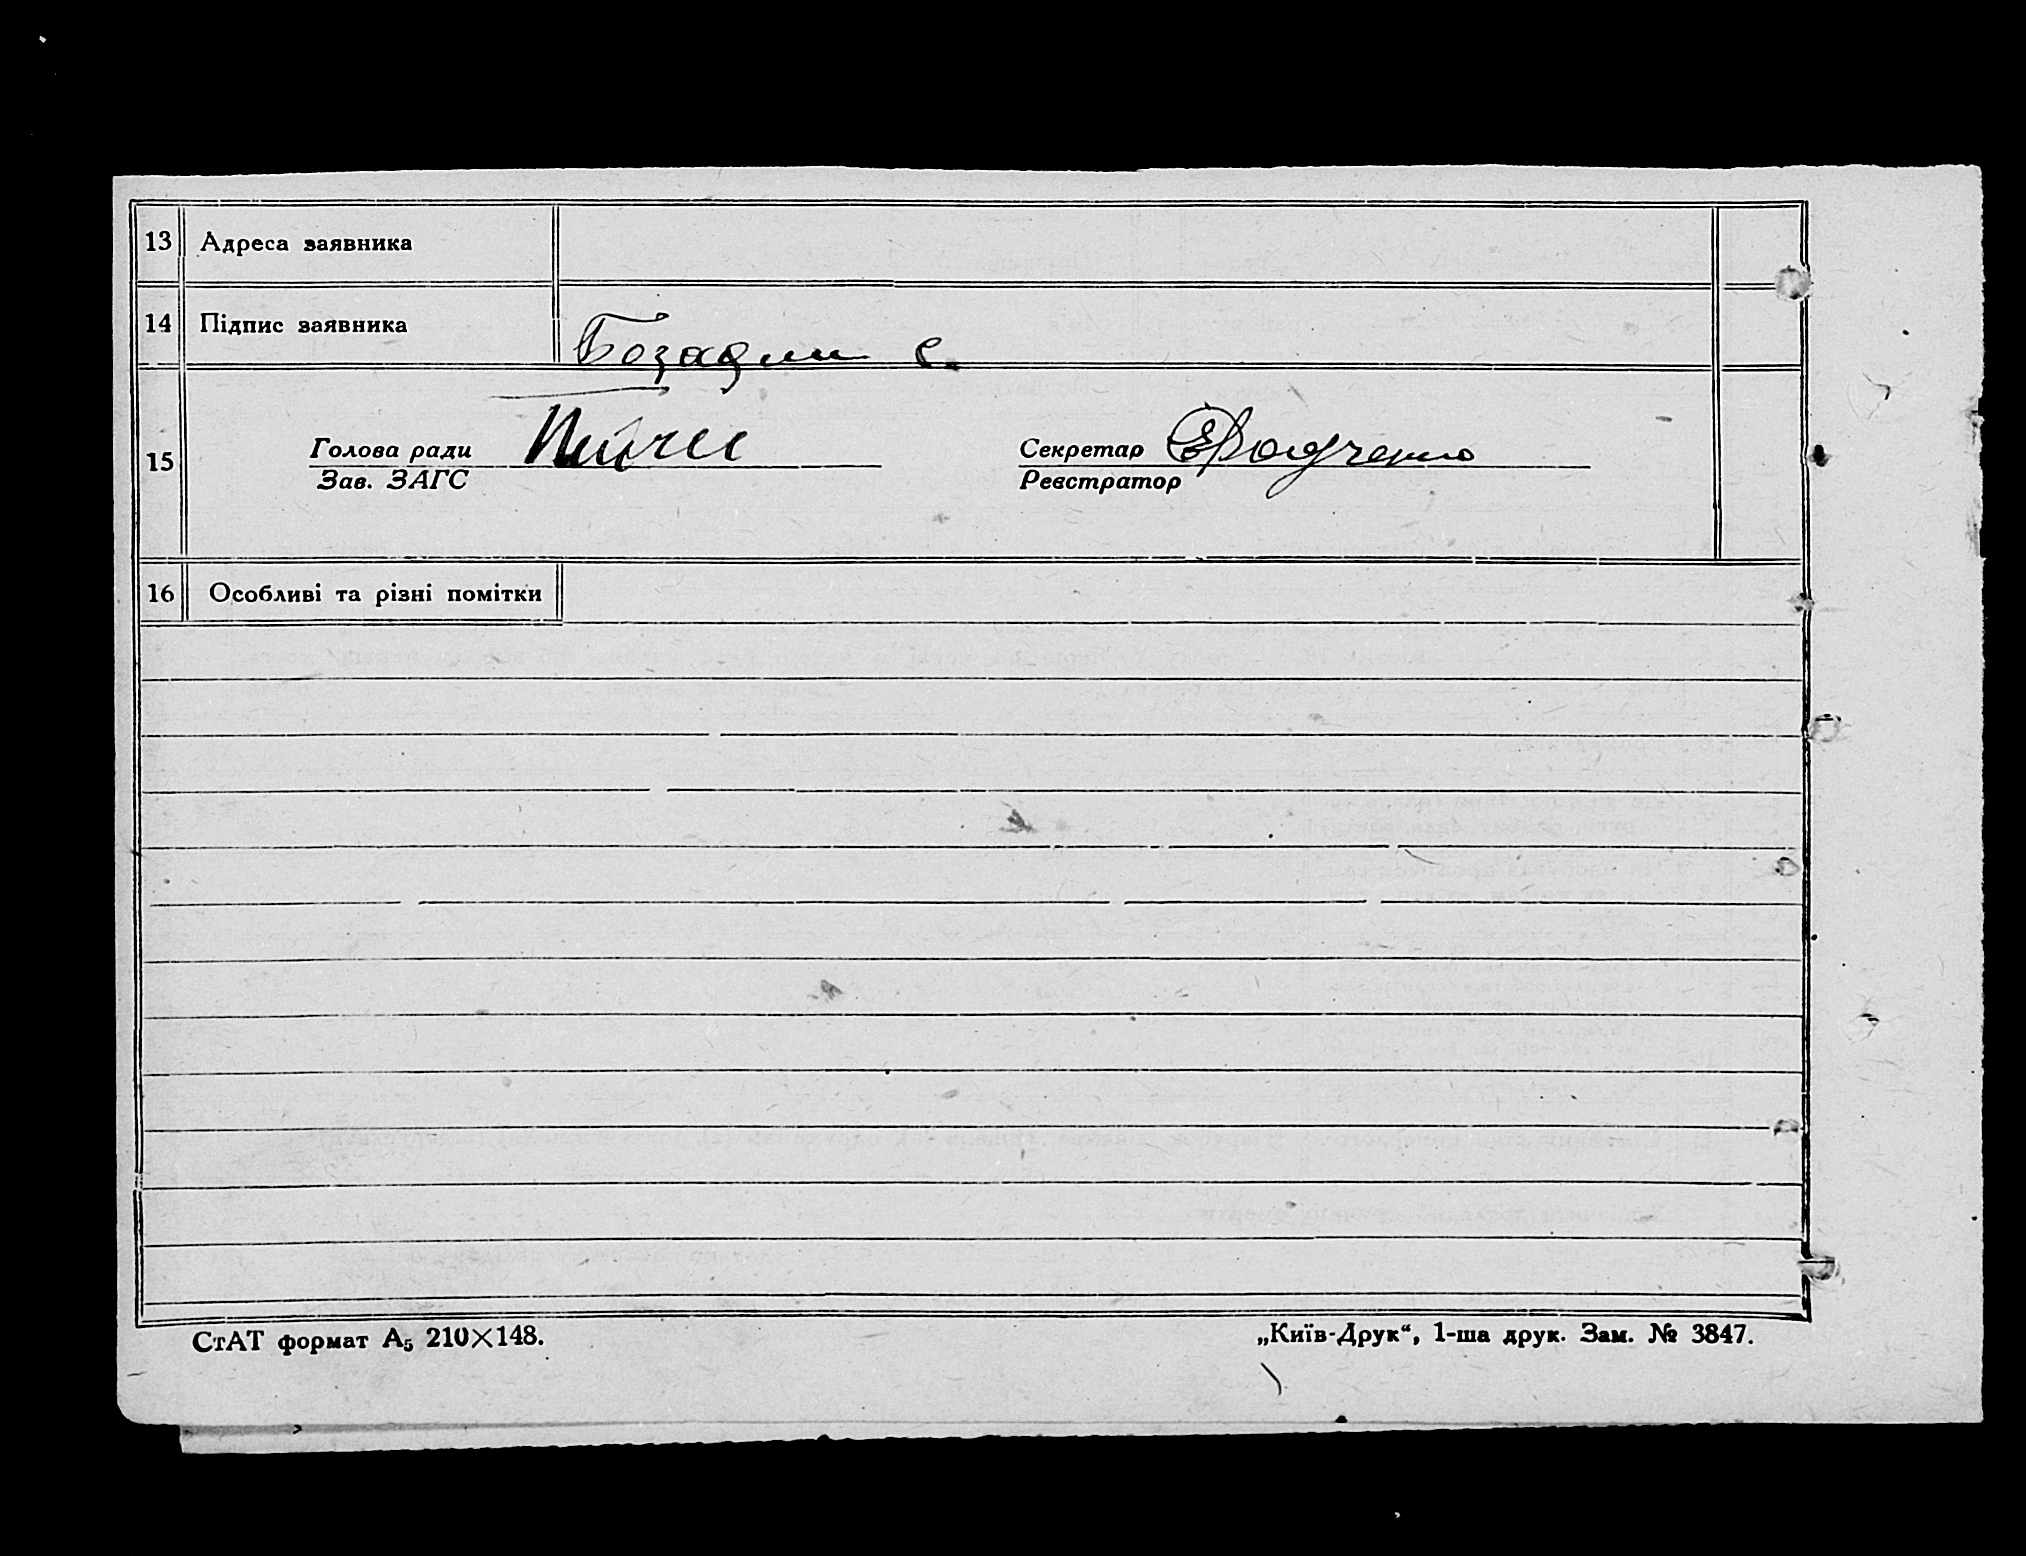 13 Адреса заявника
14 Підпис заявника
15 Голова ради Секретар
Зав. ЗАГС Реєстратор
16 Особливі та різні помітки
СтАТ формат А₅ 210×148. „Київ-Друк“, 1-ша друк. Зам. № 3847.